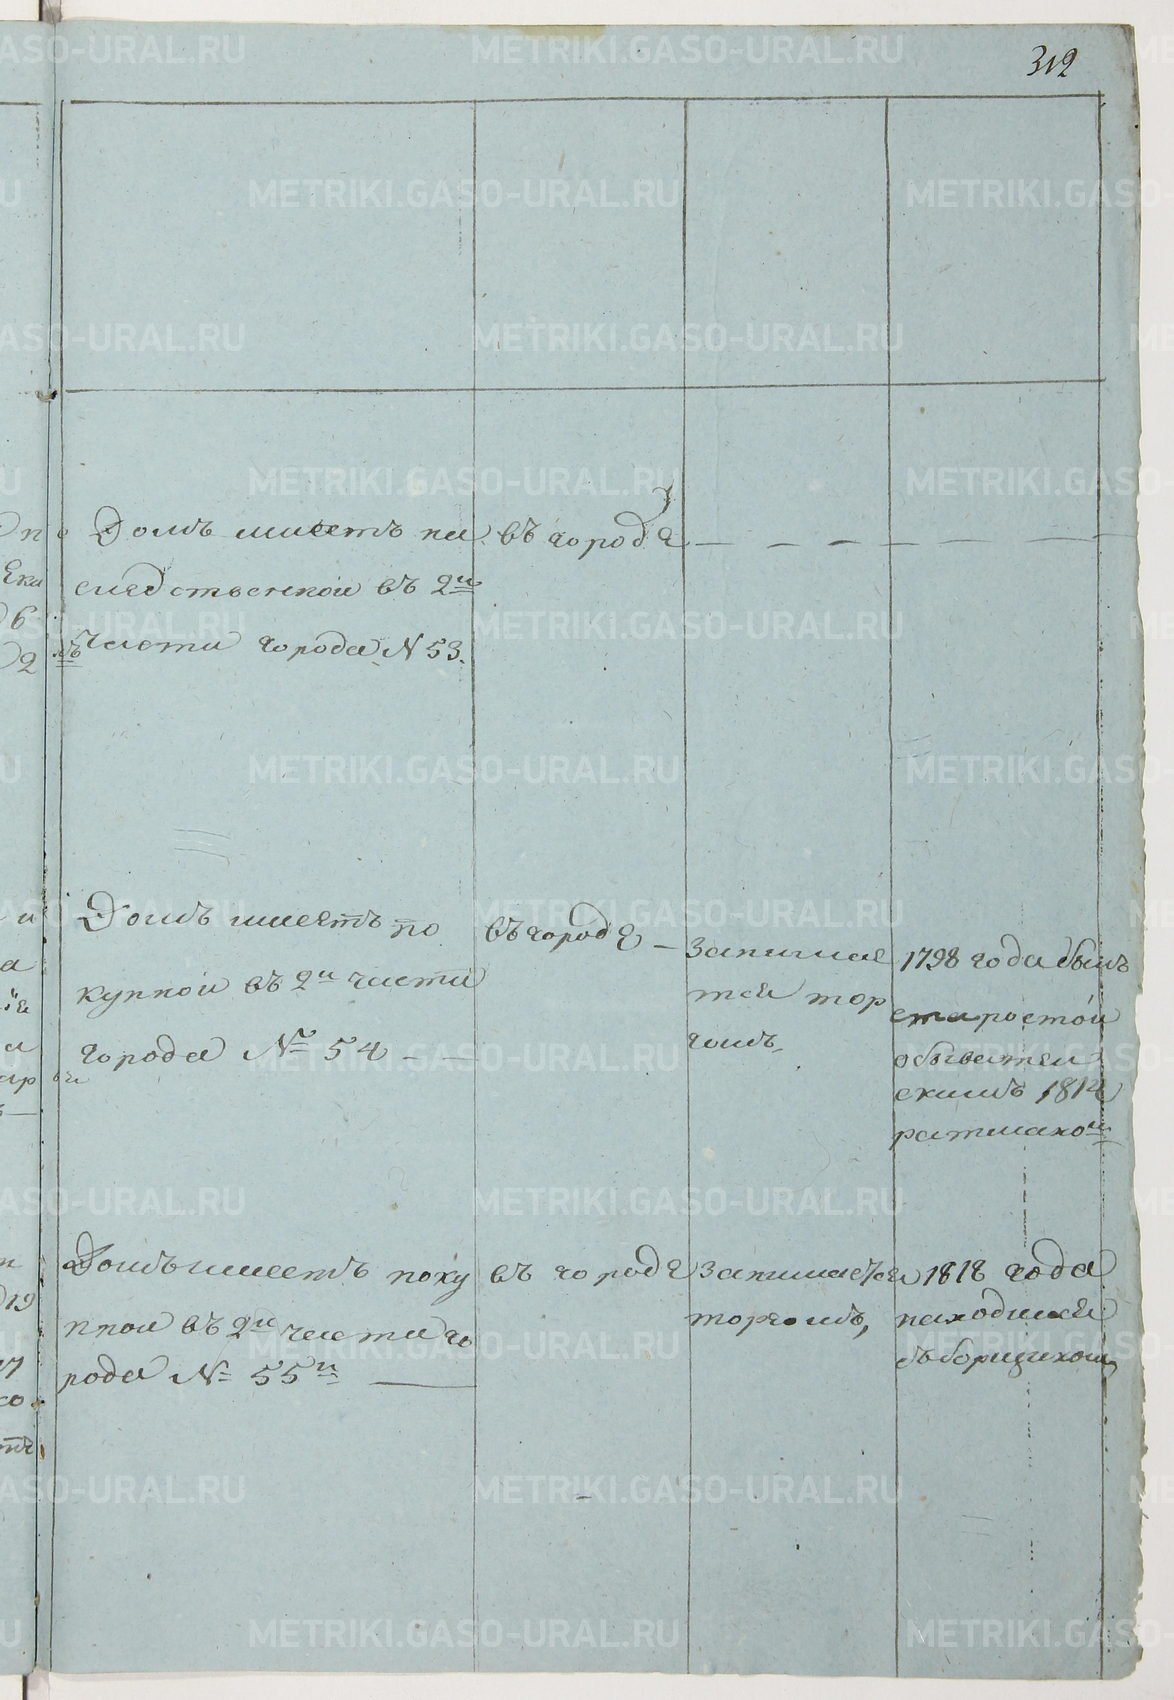 312
Домъ имеетъ на
следственной въ 2й
части города N 53.
въ городе
Домъ имеетъ по
купной въ 2й части
города № 54
въ городе
занимае
тся тор
гомъ,
1798 года былъ
старостой
обывател
скимъ 1814
ратманомъ
Домъ имеетъ поку
пной въ 2й части го
рода № 55й
въ городе
занимается
торгомъ,
1818 года
находился
зборщикомъ
METRIKI.GASO-URAL.RU